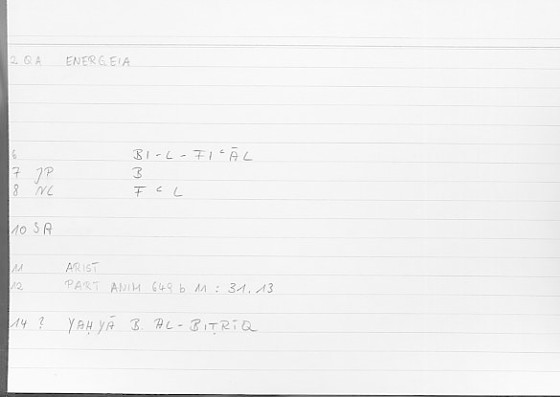 2 QA ENERGEIA
6 BI-L-FIʿĀL
7 JP B
8 NL F ʿ L
10 SA
11 ARIST
12 PART ANIM 649 b 11 : 31.13
14 ? YAḤYĀ B. AL-BIṬRĪQ